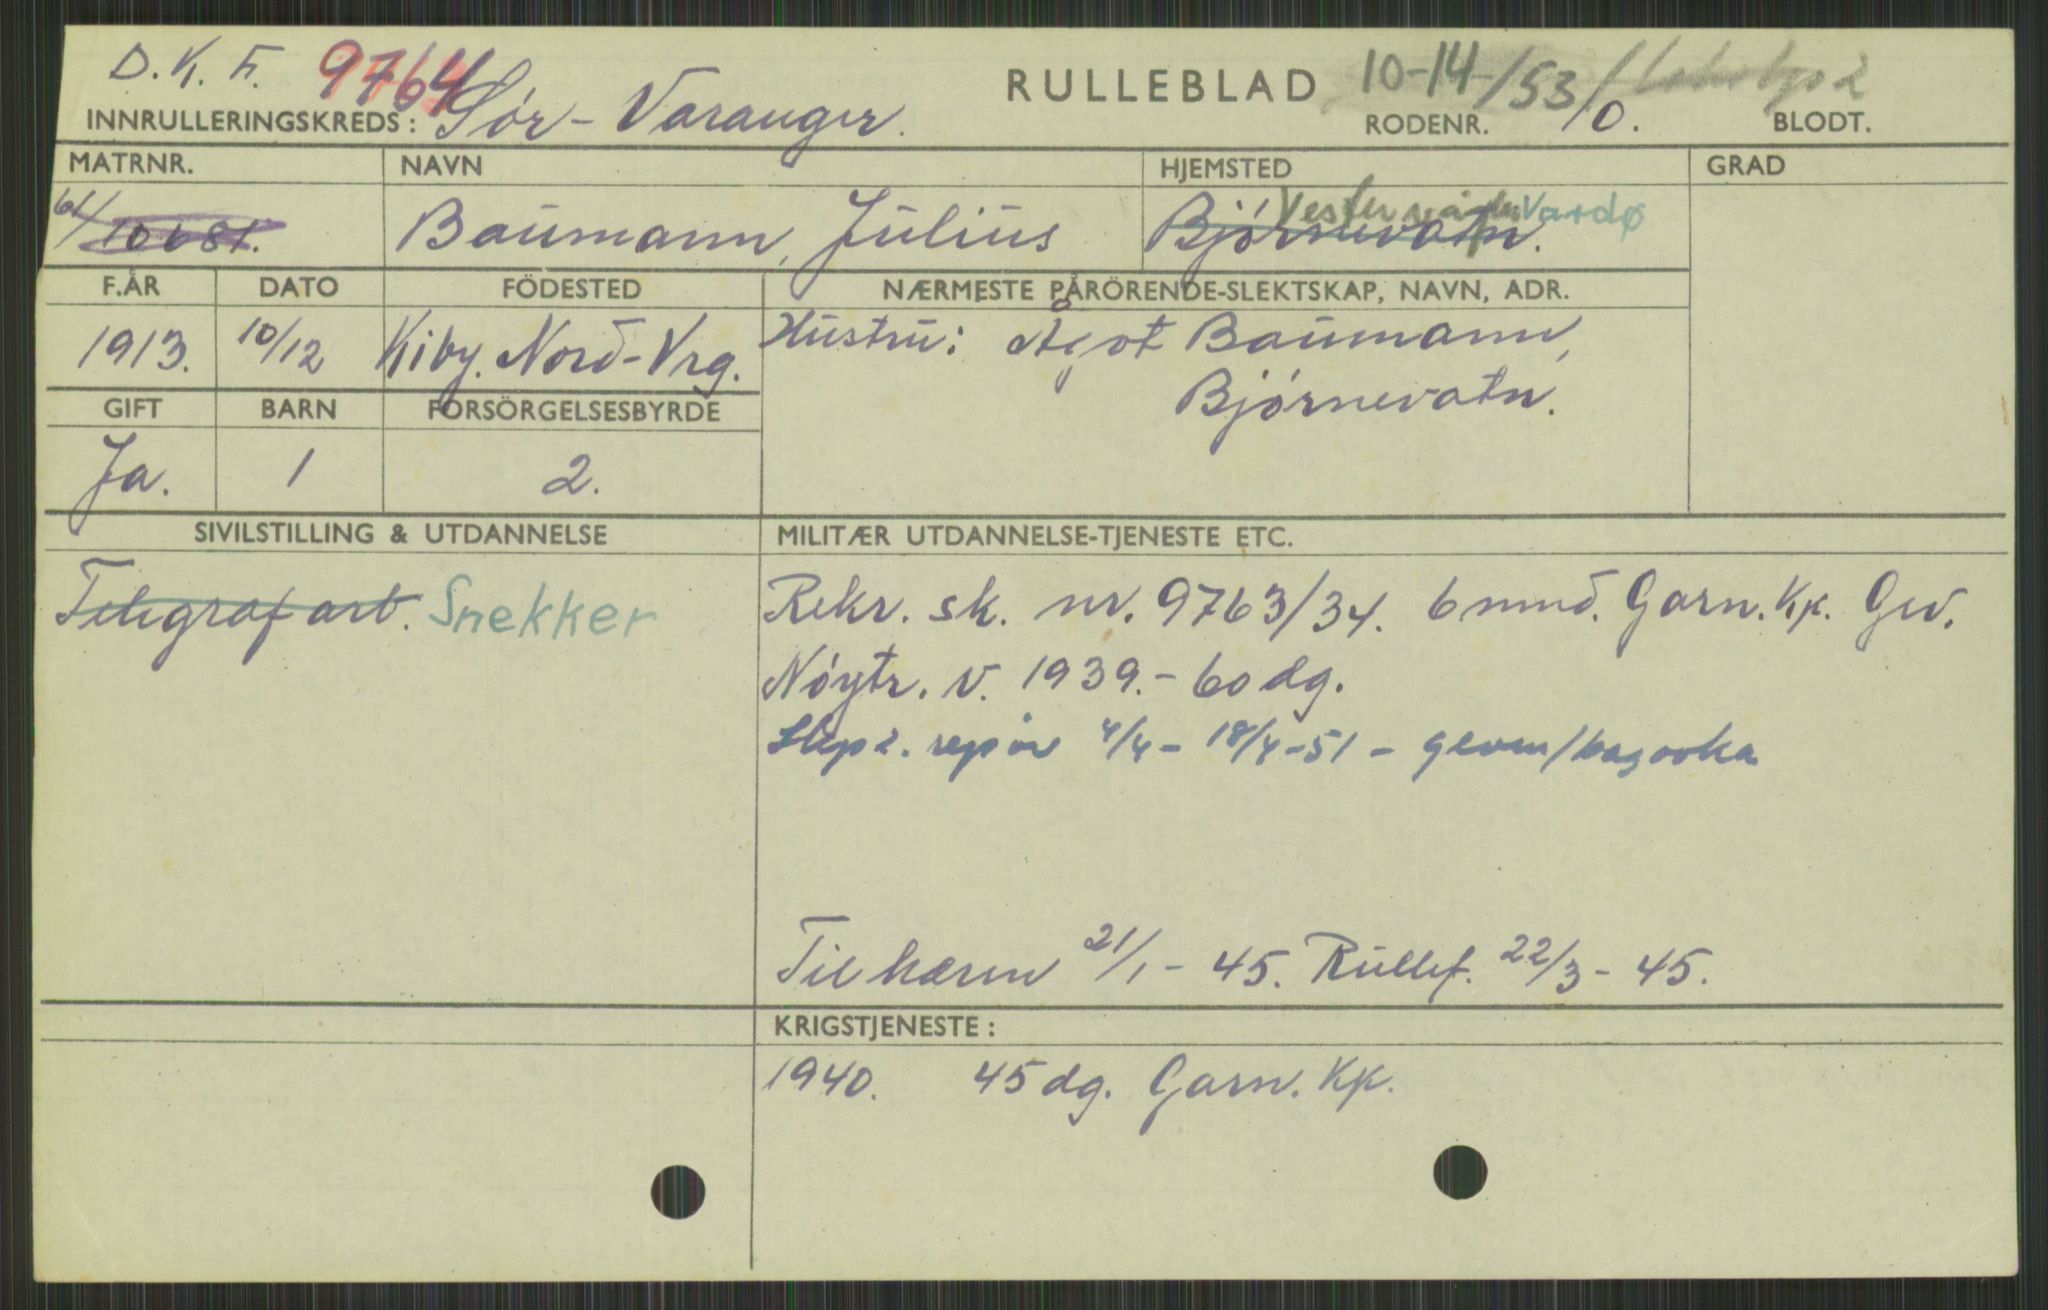 D. K. F. 9764 RULLEBLAD 10-14/53/0.
INNRULLERINGSKREDS: Sör-Varanger. RODENR. BLODT.
MATRNR. NAVN HJEMSTED GRAD
61/10681. Baumann, Julius Bjørnevatn. Vardø
F.ÅR DATO FÖDESTED NÆRMESTE PÅRÖRENDE-SLEKTSKAP, NAVN, ADR.
1913. 10/12 Kiby. Nord-Vrg. Hustru: Ågot Baumann,
Bjørnevatn.
GIFT BARN FORSÖRGELSESBYRDE
Ja. 1 2.
SIVILSTILLING & UTDANNELSE MILITÆR UTDANNELSE-TJENESTE ETC.
Telegrafarb. Snekker Rekr. sk. nr. 9763/34. 6 mnd. Garn. Kp. Gev.
Nøytr. v. 1939.- 60 dg.
rep øv 4/4 - 18/4-51 - geven/bazooka
Til hæren 21/1 - 45. Rullef. 22/3 - 45.
KRIGSTJENESTE:
1940. 45 dg. Garn. Kp.